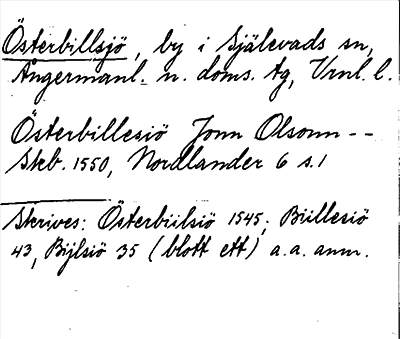 Österbillsjö, by i Själevads sn,
Ångermanl. n. doms. tg, Vrnl. l.
Österbillesiö Jonn Olsonn --
Skb. 1550, Nordlander 6 s.1
Skrives: Österbiilsiö 1545; Biillesiö
43, Bijlsiö 35 (blott ett) a.a. anm.